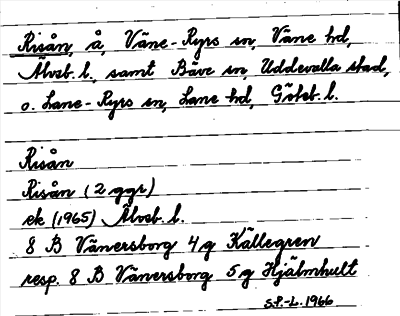 Risån, å, Väne-Ryrs sn, Väne hd,
Älvsb. l., samt Bäve sn, Uddevalla stad,
o. Lane-Ryrs sn, Lane hd, Göteb. l.
Risån
Risån (2 ggr)
ek (1965) Älvsb. l.
8 B Vänersborg 4 g Källegren
resp. 8 B Vänersborg 5 g Hjälmhult
S.F.-L. 1966